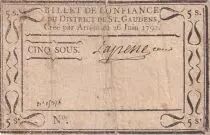 BILLET DE CONFIANCE
DU DISTRICT DE ST. GAUDENS,
Créé par Arrêté du 26 Juin 1792.
5 S. 5 S.
CINQ SOUS.
5 S. 5 S.
N°.